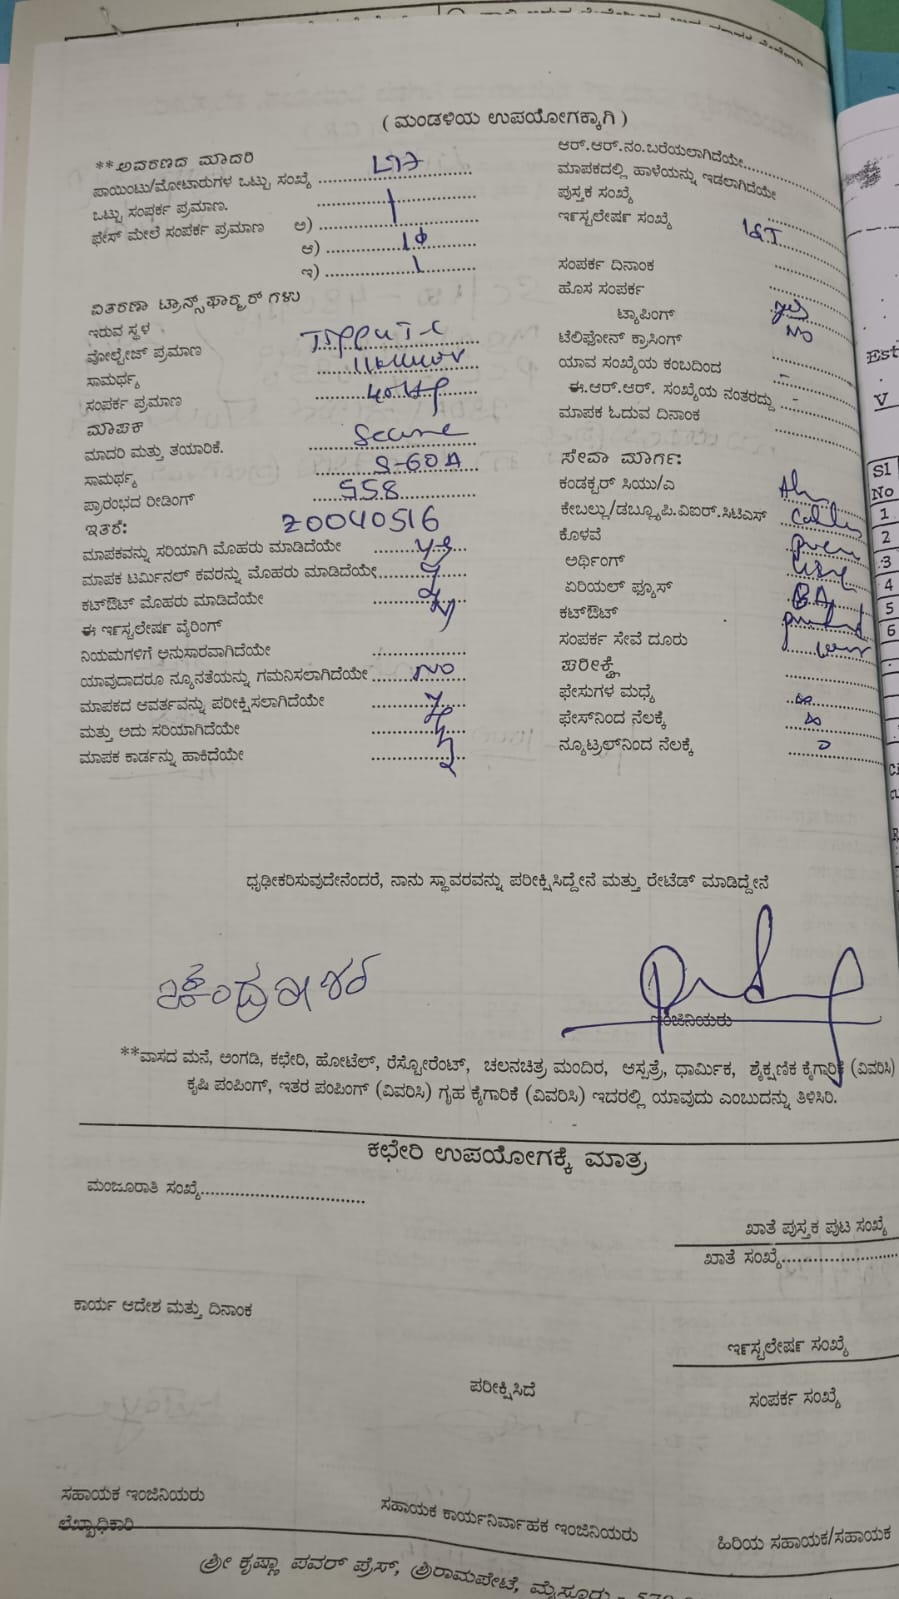 ( ಮಂಡಳಿಯ ಉಪಯೋಗಕ್ಕಾಗಿ )
**ಆವರಣದ ಮಾದರಿ
ಪಾಯಿಂಟು/ಮೋಟಾರುಗಳ ಒಟ್ಟು ಸಂಖ್ಯೆ ....................
ಒಟ್ಟು ಸಂಪರ್ಕ ಪ್ರಮಾಣ. ....................
ಫೇಸ್ ಮೇಲೆ ಸಂಪರ್ಕ ಪ್ರಮಾಣ ಅ) .................... 1
ಆ) .................... 1ϕ
ಇ) .................... 1
ವಿತರಣಾ ಟ್ರಾನ್ಸ್‌ಫಾರ್‍ಮರ್ ಗಳು
ಇರುವ ಸ್ಥಳ
ವೋಲ್ಟೇಜ್ ಪ್ರಮಾಣ
ಸಾಮರ್ಥ್ಯ
ಸಂಪರ್ಕ ಪ್ರಮಾಣ 40 HP
ಮಾಪಕ
ಮಾದರಿ ಮತ್ತು ತಯಾರಿಕೆ. Secure
ಸಾಮರ್ಥ್ಯ 5-60A
ಪ್ರಾರಂಭದ ರೀಡಿಂಗ್ 558
ಇತರೆ: 20040516
ಮಾಪಕವನ್ನು ಸರಿಯಾಗಿ ಮೊಹರು ಮಾಡಿದೆಯೇ
ಮಾಪಕ ಟರ್ಮಿನಲ್ ಕವರನ್ನು ಮೊಹರು ಮಾಡಿದೆಯೇ
ಕಟ್‌ಔಟ್ ಮೊಹರು ಮಾಡಿದೆಯೇ
ಈ ಇನ್‌ಸ್ಟಲೇಷನ್ ವೈರಿಂಗ್
ನಿಯಮಗಳಿಗೆ ಅನುಸಾರವಾಗಿದೆಯೇ
ಯಾವುದಾದರೂ ನ್ಯೂನತೆಯನ್ನು ಗಮನಿಸಲಾಗಿದೆಯೇ NO
ಮಾಪಕದ ಆವರ್ತವನ್ನು ಪರೀಕ್ಷಿಸಲಾಗಿದೆಯೇ
ಮತ್ತು ಅದು ಸರಿಯಾಗಿದೆಯೇ
ಮಾಪಕ ಕಾರ್ಡನ್ನು ಹಾಕಿದೆಯೇ
ಆರ್.ಆರ್.ನಂ.ಬರೆಯಲಾಗಿದೆಯೇ
ಮಾಪಕದಲ್ಲಿ ಹಾಳೆಯನ್ನು ಇಡಲಾಗಿದೆಯೇ
ಪುಸ್ತಕ ಸಂಖ್ಯೆ
ಇನ್‌ಸ್ಟಲೇಷನ್ ಸಂಖ್ಯೆ
ಸಂಪರ್ಕ ದಿನಾಂಕ
ಹೊಸ ಸಂಪರ್ಕ
ಟ್ಯಾಪಿಂಗ್ yes
ಟೆಲಿಫೋನ್ ಕ್ರಾಸಿಂಗ್ NO
ಯಾವ ಸಂಖ್ಯೆಯ ಕಂಬದಿಂದ -
ಈ.ಆರ್.ಆರ್. ಸಂಖ್ಯೆಯ ನಂತರದ್ದು -
ಮಾಪಕ ಓದುವ ದಿನಾಂಕ
ಸೇವಾ ಮಾರ್ಗ:
ಕಂಡಕ್ಟರ್ ಸಿಯು/ಎ
ಕೇಬಲ್ಲು/ಡಬ್ಲ್ಯೂಪಿ.ವಿಐಆರ್.ಸಿಟಿಎಸ್
ಕೊಳವೆ
ಅರ್ಥಿಂಗ್
ಏರಿಯಲ್ ಫ್ಯೂಸ್
ಕಟ್‌ಔಟ್
ಸಂಪರ್ಕ ಸೇವೆ ದೂರು
ಪರೀಕ್ಷೆ
ಫೇಸುಗಳ ಮಧ್ಯೆ
ಫೇಸ್‌ನಿಂದ ನೆಲಕ್ಕೆ
ನ್ಯೂಟ್ರಲ್‌ನಿಂದ ನೆಲಕ್ಕೆ
ಧೃಢೀಕರಿಸುವುದೇನೆಂದರೆ, ನಾನು ಸ್ಥಾವರವನ್ನು ಪರೀಕ್ಷಿಸಿದ್ದೇನೆ ಮತ್ತು ರೇಟೆಡ್ ಮಾಡಿದ್ದೇನೆ
ಇಂಜಿನಿಯರು
**ವಾಸದ ಮನೆ, ಅಂಗಡಿ, ಕಛೇರಿ, ಹೋಟೆಲ್, ರೆಸ್ಟೋರೆಂಟ್, ಚಲನಚಿತ್ರ ಮಂದಿರ, ಆಸ್ಪತ್ರೆ, ಧಾರ್ಮಿಕ, ಶೈಕ್ಷಣಿಕ ಕೈಗಾರಿಕೆ (ವಿವರಿಸಿ)
ಕೃಷಿ ಪಂಪಿಂಗ್, ಇತರ ಪಂಪಿಂಗ್ (ವಿವರಿಸಿ) ಗೃಹ ಕೈಗಾರಿಕೆ (ವಿವರಿಸಿ) ಇದರಲ್ಲಿ ಯಾವುದು ಎಂಬುದನ್ನು ತಿಳಿಸಿರಿ.
ಕಛೇರಿ ಉಪಯೋಗಕ್ಕೆ ಮಾತ್ರ
ಮಂಜೂರಾತಿ ಸಂಖ್ಯೆ....................
ಖಾತೆ ಪುಸ್ತಕ ಪುಟ ಸಂಖ್ಯೆ
ಖಾತೆ ಸಂಖ್ಯೆ....................
ಕಾರ್ಯ ಆದೇಶ ಮತ್ತು ದಿನಾಂಕ
ಇನ್‌ಸ್ಟಲೇಷನ್ ಸಂಖ್ಯೆ
ಪರೀಕ್ಷಿಸಿದೆ
ಸಂಪರ್ಕ ಸಂಖ್ಯೆ
ಸಹಾಯಕ ಇಂಜಿನಿಯರು
ಲೆಖ್ಖಾಧಿಕಾರಿ
ಸಹಾಯಕ ಕಾರ್ಯನಿರ್ವಾಹಕ ಇಂಜಿನಿಯರು
ಹಿರಿಯ ಸಹಾಯಕ/ಸಹಾಯಕ
ಶ್ರೀ ಕೃಷ್ಣಾ ಪವರ್ ಪ್ರೆಸ್, ಶ್ರೀರಾಮಪೇಟೆ, ಮೈಸೂರು -
Est
V
Sl
No
1
2
3
4
5
6